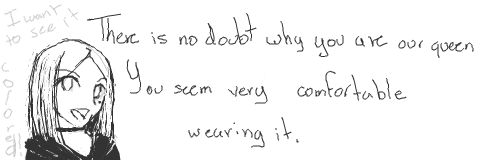 I want
to see it
colored!!
There is no doubt why you are our queen
You seem very comfortable
wearing it.